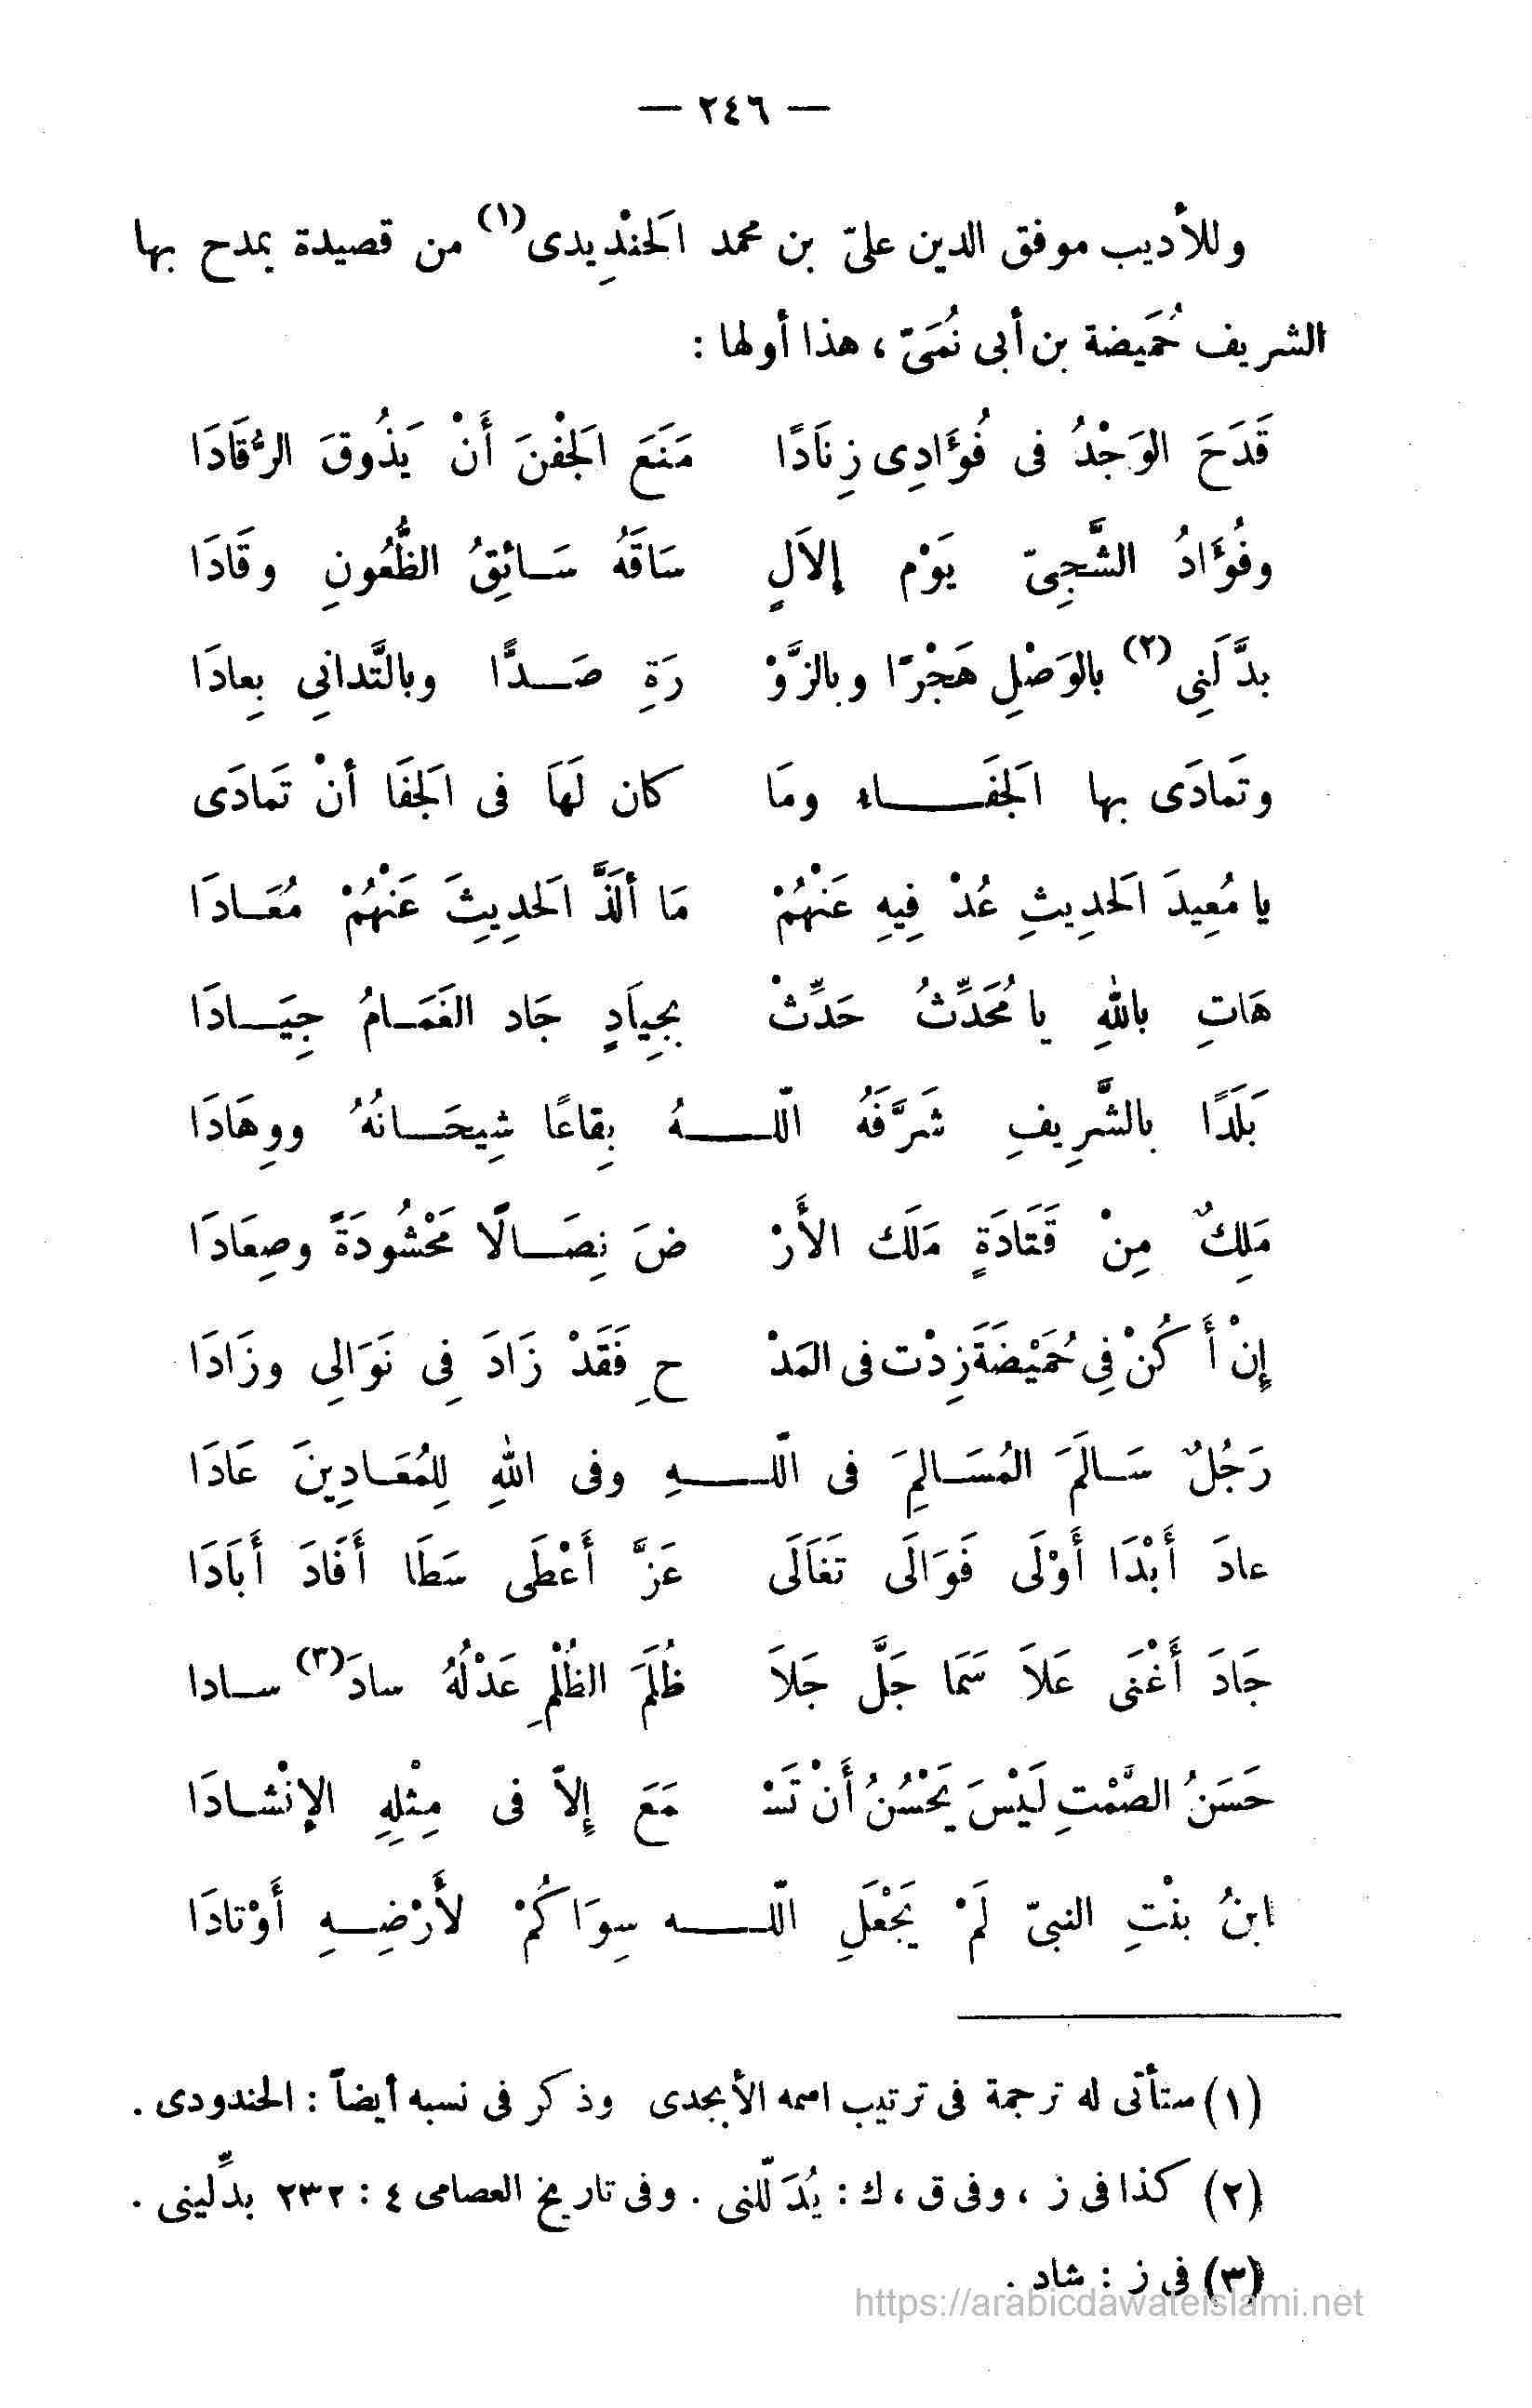 — ٢٤٦ —
وللأديب موفق الدين علىّ بن محمد الَحنْدِيدى(١) من قصيدة يمدح بها
الشريف حُمَيضة بن أبى نُمَىّ ، هذا أولها :
قَدَحَ الوَجْدُ فى فُؤَادِى زِنَادًا مَنَعَ الَجفْنَ أَنْ يَذُوقَ الرُّقَادَا
وفُؤَادُ الشَّجِىّ يَوْم إِلاَلٍ سَاقَهُ سَـائِقُ الظُّعُونِ وقَادَا
بدَّلَنِى(٢) بالوَصْلِ هَجْرًا وبالزَّوْ رَةِ صَـدًّا وبالتَّدانِي بِعادَا
وتَمادَى بها الَجفَـاء ومَا كان لَهَا فى الَجفَا أنْ تَمادَى
يا مُعِيدَ الَحدِيثِ عُدْ فِيهِ عَنْهُمْ مَا أَلَذَّ الَحدِيثَ عَنْهُمْ مُعَـادَا
هَاتِ باللهِ يا مُحَدِّثُ حَدِّثْ بِجِيَادٍ جَاد الغَمَـامُ جِيَـادَا
بَلَدًا بالشَّرِيفِ شَرَّفَهُ اللّـهُ بِقاعًا شِيحَـانُهُ ووِهَادَا
مَلِكٌ مِنْ قَتَادَةٍ مَلَك الأَرْ ضَ نِصَـالًا مَحْشُودَةً وصِعَادَا
إِنْ أَكُنْ فِى حُمَيْضَةَ زِدْت فى المَدْ حِ فَقَدْ زَادَ فِى نَوَالِى وزَادَا
رَجُلٌ سَـالَمَ المُسَـالِمَ فى اللّـهِ وفى اللهِ لِلمُعَـادِينَ عَادَا
عادَ أَبْدَا أَوْلَى فَوَالَى تَغَالَى عَزَّ أَعْطَى سَطَا أَفَادَ أَبَادَا
جَادَ أَغْنَى عَلاَ سَمَا جَلَّ جَلاَ ظُلَمَ الظُلْمِ عَدْلُهُ سادَ(٣) سـادا
حَسَنُ الصَّمْتِ لَيْسَ يَحْسُنُ أَنْ تَسْ مَعَ إِلاَّ فى مِثْلِهِ الإِنْشـادَا
ابنُ بنْتِ النبىّ لَمْ يَجْعَلِ اللّـه سِوَاكُمْ لأَرْضِـهِ أَوْتادَا
(١) ستأتى له ترجمة فى ترتيب اسمه الأبجدى وذكر فى نسبه أيضاً : الحندودى .
(٢) كذا فى ز ، وفى ق ، ك : يُدَلّلنى . وفى تاريخ العصامى ٤ : ٢٣٢ بدِّلينى .
(٣) فى ز : شاد .
https://arabicdawateislami.net